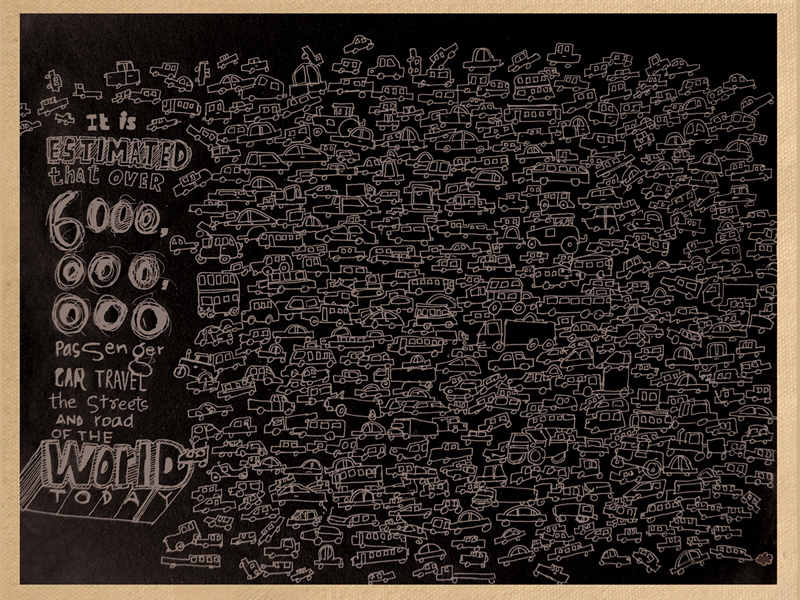 It is
ESTIMATED
that OVER
6000,
000,
000
Passenger
CAR TRAVEL
the Streets
AND road
OF THE
WORlD
TODAY